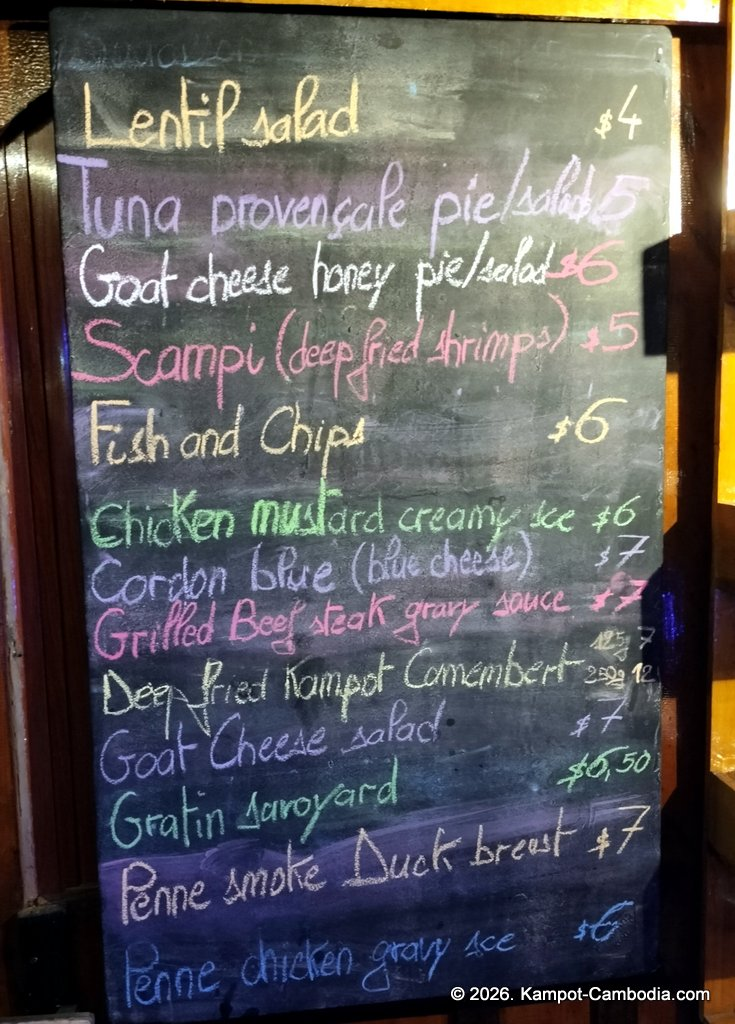 Lentil salad $4
Tuna provençale pie/salad 5
Goat cheese honey pie/salad $6
Scampi (deep fried shrimps) $5
Fish and Chips $6
Chicken mustard creamy sce $6
Cordon blue (blue cheese) $7
Grilled Beef steak gravy sauce $7
125g 7
Deep fried Kampot Camembert 250g 12
Goat Cheese salad $7
Gratin savoyard $6,50
Penne smoke Duck breast $7
Penne chicken gravy sce $6
© 2026. Kampot-Cambodia.com